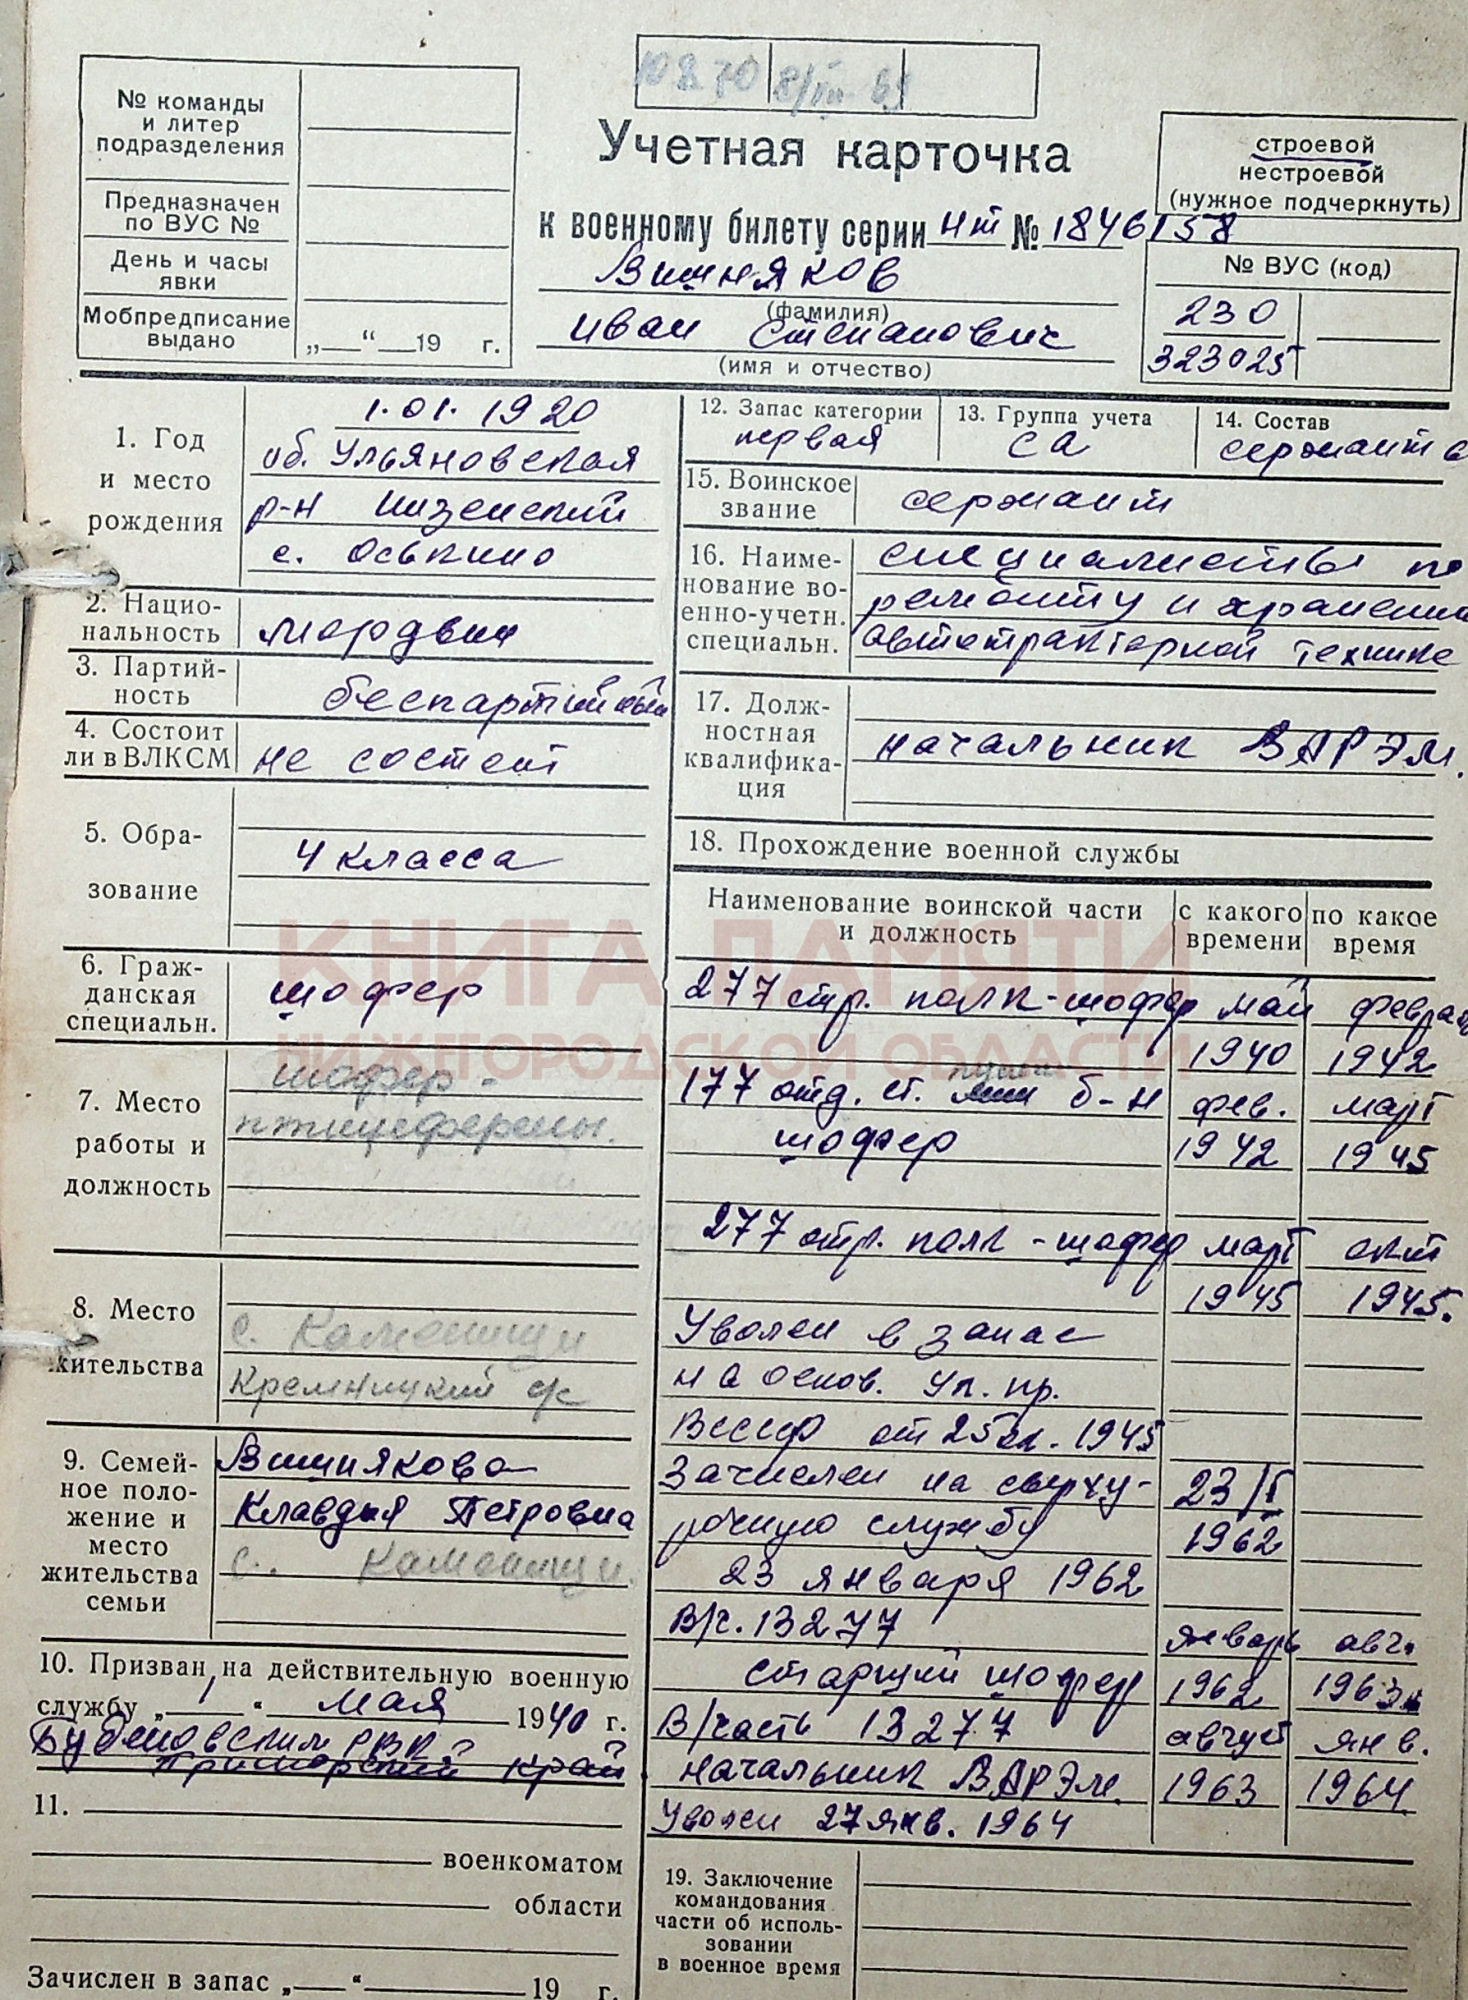 № команды
и литер
подразделения
Предназначен
по ВУС №
День и часы
явки
Мобпредписание
выдано
„ “ 19 г.
Учетная карточка
к военному билету серии нт № 1846158
Вишняков
(фамилия)
иван Степанович
(имя и отчество)
строевой
нестроевой
(нужное подчеркнуть)
№ ВУС (код)
230
323025
1. Год
и место
рождения
1.01.1920
об. Ульяновская
р-н инзенский
с. Оськино
2. Нацио-
нальность
мордвин
3. Партий-
ность
беспартийный
4. Состоит
ли в ВЛКСМ
не состоит
5. Обра-
зование
4 класса
6. Граж-
данская
специальн.
шофер
7. Место
работы и
должность
шофер -
птицефермы.
8. Место
жительства
с. Каменищи
Кремницкий с/с
9. Семей-
ное поло-
жение и
место
жительства
семьи
Вишнякова
Клавдия Петровна
с. Каменищи.
10. Призван на действительную военную
службу „ 1 “ мая 1940 г.
Буденовским РВК
Приморский край
11.
военкоматом
области
Зачислен в запас „ “ 19 г.
12. Запас категории
первая
13. Группа учета
СА
14. Состав
сержантов
15. Воинское
звание
сержант
16. Наиме-
нование во-
енно-учетн.
специальн.
специалисты по
ремонту и хранению
автотракторной технике
17. Долж-
ностная
квалифика-
ция
начальник ВАРЭМ.
18. Прохождение военной службы
Наименование воинской части
и должность
с какого
времени
по какое
время
277 стр. полк - шофер май февраль
1940 1942
177 отд. ст. б-н фев. март
шофер 1942 1945
277 стр. полк - шофер март окт
1945 1945.
Уволен в запас
на основ. Ук. пр.
ВСССР от 25 ок. 1945
Зачислен на сверху- 23/I
рочную службу 1962
23 января 1962
В/ч. 13277 январь авг.
старший шофер 1962 1963
В/часть 13277 август янв.
начальник ВАРЭМ. 1963 1964
Уволен 27 янв. 1964
19. Заключение
командования
части об исполь-
зовании
в военное время
КНИГА ПАМЯТИ
НИЖЕГОРОДСКОЙ ОБЛАСТИ